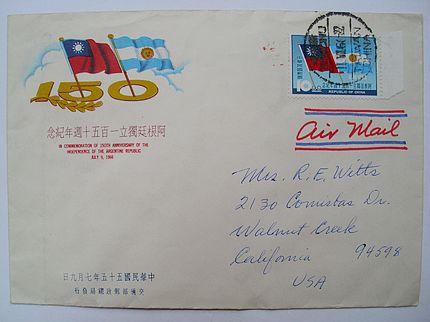 150
念紀年週十五百一立獨廷根阿
IN COMMEMORATION OF THE 150TH ANNIVERSARY OF THE
INDEPENDENCE OF THE ARGENTINE REPUBLIC
JULY 9, 1966
10
REPUBLIC OF CHINA
TAIWAN
CHINA
Air Mail
Mrs. R. E. Witts
2130 Comistas Dr.
Walnut Creek
California 94598
USA
日九月七年五十五國民華中